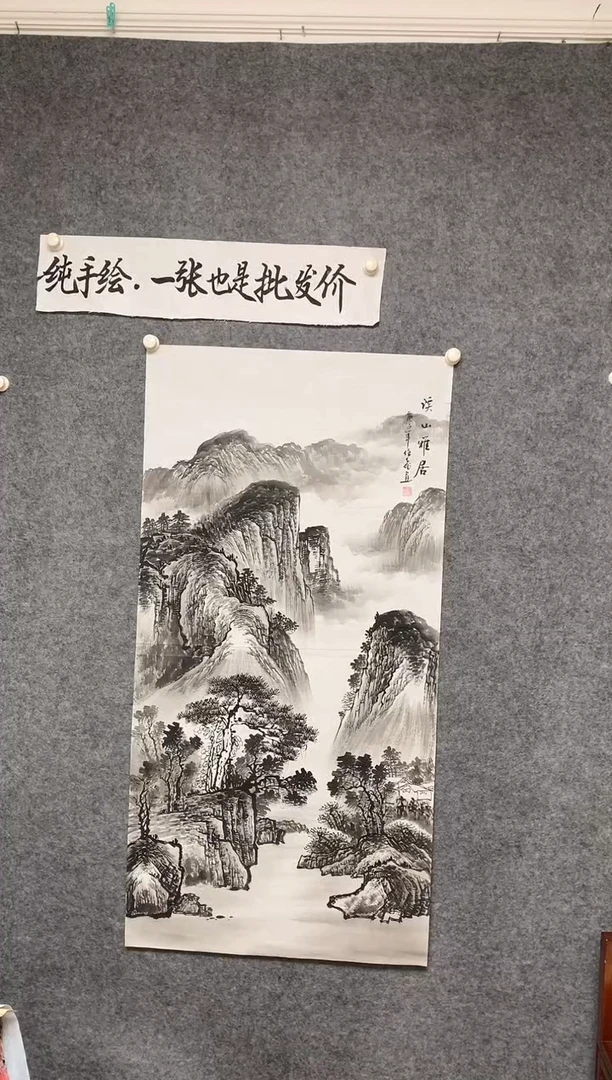 纯手绘.一张也是批发价
溪山雅居